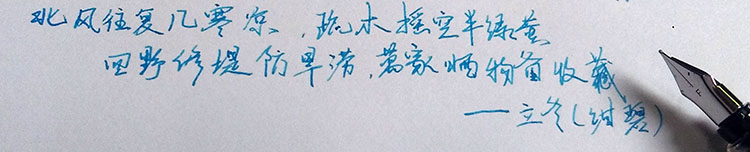 北风往复几寒凉，疏木摇空半绿黄
四野修堤防旱涝，萬家晒物备收藏
——立冬(绀碧)